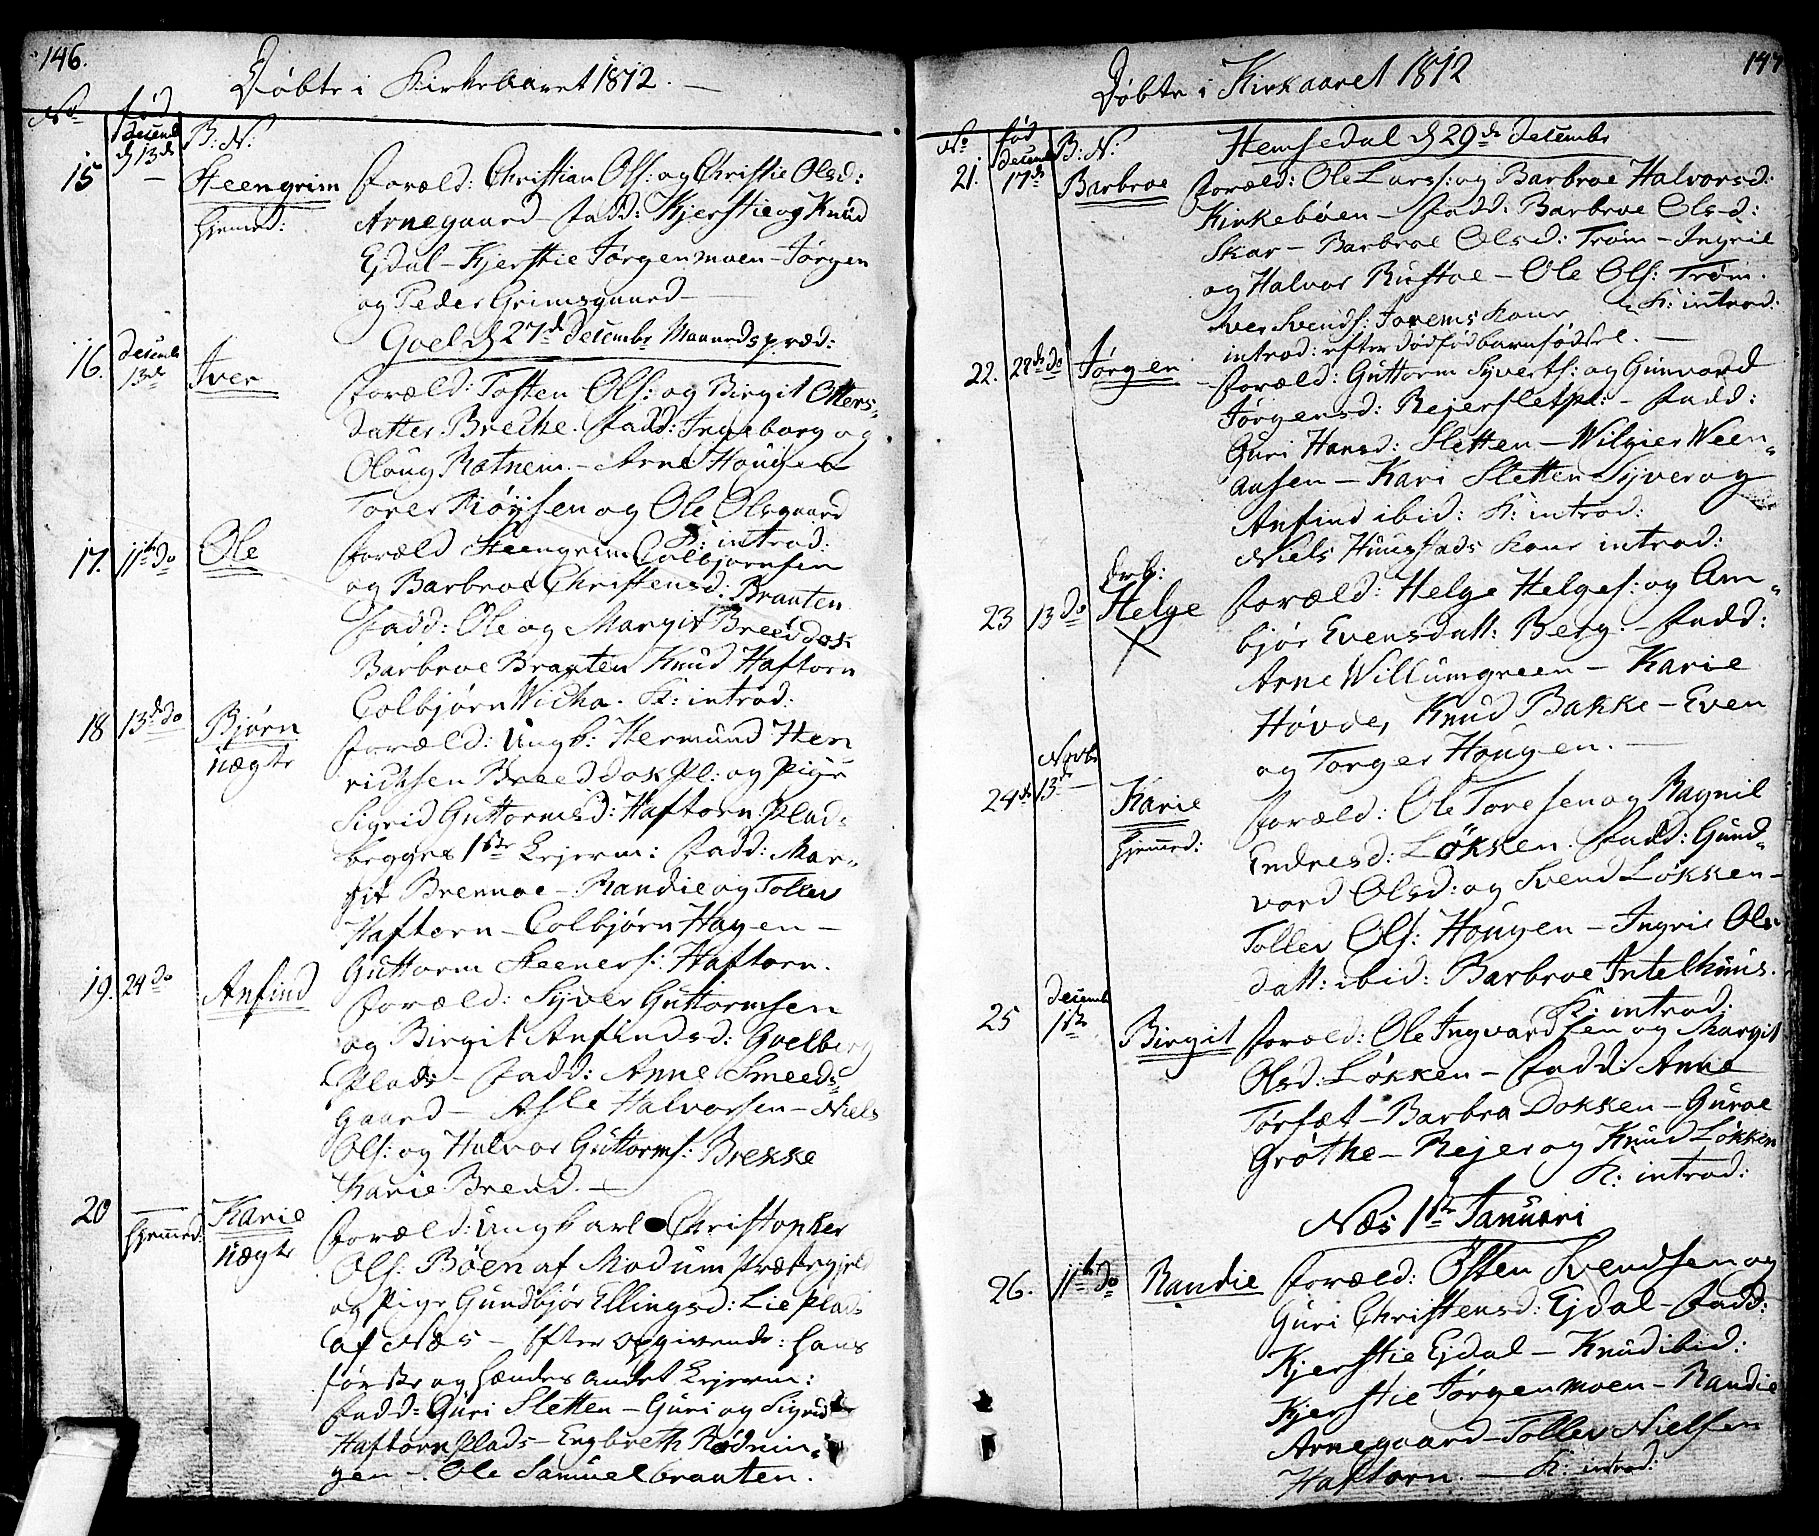 146.
Döbte i Kirkeaaret 1812.
No
född
B: N:
15
Decemb
d 13de
Steengrim
hjemed:
Foræld: Christian Ols: og Christie Olsd:
Arnegaard – Fadd: Kjerstie og Knud
Ejdal – Kjerstie Jörgenmoen – Jörgen
og Peder Grimsgaard –
Goel d 27de Decembr Maanedspræd:
16.
Decemb
13de
Iver
Foræld: Tosten Ols: og Birgit Otters-
datter Brecke. Fadd: Ingeborg og
Oloug Rotneim. – Arne Hougen
Torer Röysen og Ole Olsgaard
K: introd:
17.
11te do
Ole
Foræld Steengrim Colbjörnsen
og Barbroe Christensd: Braaten
Fadd: Ole og Margit Breeddok
Barbroe Braaten Knud Haftorn
Colbjörn Wicha. K: introd:
18
13de do
Björn
uægte
Foræld: Ungk: Hermund Hen
richsen Breeddok Pl: og Pige
Sigrid Guttormsd: Haftorn Plads
begges 1ste Lejerm: Fadd: Mar-
git Brennoe – Randie og Tollev
Haftorn – Colbjörn Hagen –
Guttorm Steeners: Haftorn.
19.
24 do
Anfind
Foræld: Syver Guttormsen
og Birgit Anfindsd: Goelberg
Plads – Fadd: Anne Smeeds-
gaard – Asle Halvorsen – Niels
Ols: og Halvor Guttorms: Brekke
Karie Brend. –
20
hjemed:
Karie
uægte
Foræld: Ungkarl Christopher
Ols: Böen af Modum Præstegjeld
og Pige Gundbjör Ellingsd: Lie Plads
af Næs – Efter opgivende: hans
förste og hendes andet Lejerm:
Fadd: Guri Sletten – Guri og Sigrid
Haftorn Plads – Engbreth Rödnin-
gen – Ole Samuelbraaten.
147
Döbte i Kirkaaret 1812
No
född
B: N:
Hemsedal d 29de Decembr
21.
Decemb
17de
Barbroe
Foræld: Ole Larss: og Barbroe Halvorsd:
Kirkeböen – Fadd: Barbroe Olsd:
Skar – Barbroe Olsd: Tröm – Ingril
og Halvor Rustoe – Ole Ols: Tröm.
K: introd:
Iver Svends: Jorems Kone
introd: efter dödfödbarnsfödsel. –
22.
22de do
Jörgen
Foræld: Guttorm Syverts: og Gunvord
Jörgensd: Rejersletpl: – Fadd:
Guri Hansd: Sletten – Wilgier Ween-
aasen – Kari Sletten Syver og
Anfind ibid: K: introd:
Niels Huusstads Kone introd:
23
13 do
Helge
Foræld: Helge Helges: og Am-
björ Evensdatt: Berg: – Fadd:
Arne Willumgreen – Karie
Hövde, Knud Bakke – Even
og Torger Hougen. –
24de
Novbr
13de
Karie
hjemed:
Foræld: Ole Toresen og Ragnil
Endresd: Lökken. Fadd: Gund-
vord Olsd: og Svend Lökken –
Tollev Ols: Hougen – Ingrie Ols-
datt: ibid: Barbroe Intelhuus.
K: introd.
25
Decemb
1ste
Birgit
Foræld: Ole Ingvardsen og Margit
Olsd: Lökken – Fadd: Anne
Törfæt – Barbra Dokken – Guroe
Gröthe – Rejer og Knud Lökken
K: introd:
Næs 1ste Januari
26.
11te do
Randie
Foræld: Östen Svendsen og
Guri Christensd: Ejdal – Fadd:
Kjerstie Ejdal – Knud ibid:
Kjerstie Jörgenmoen – Randie
Arnegaard – Tollev Nielsen
Haftorn. – K: introd: